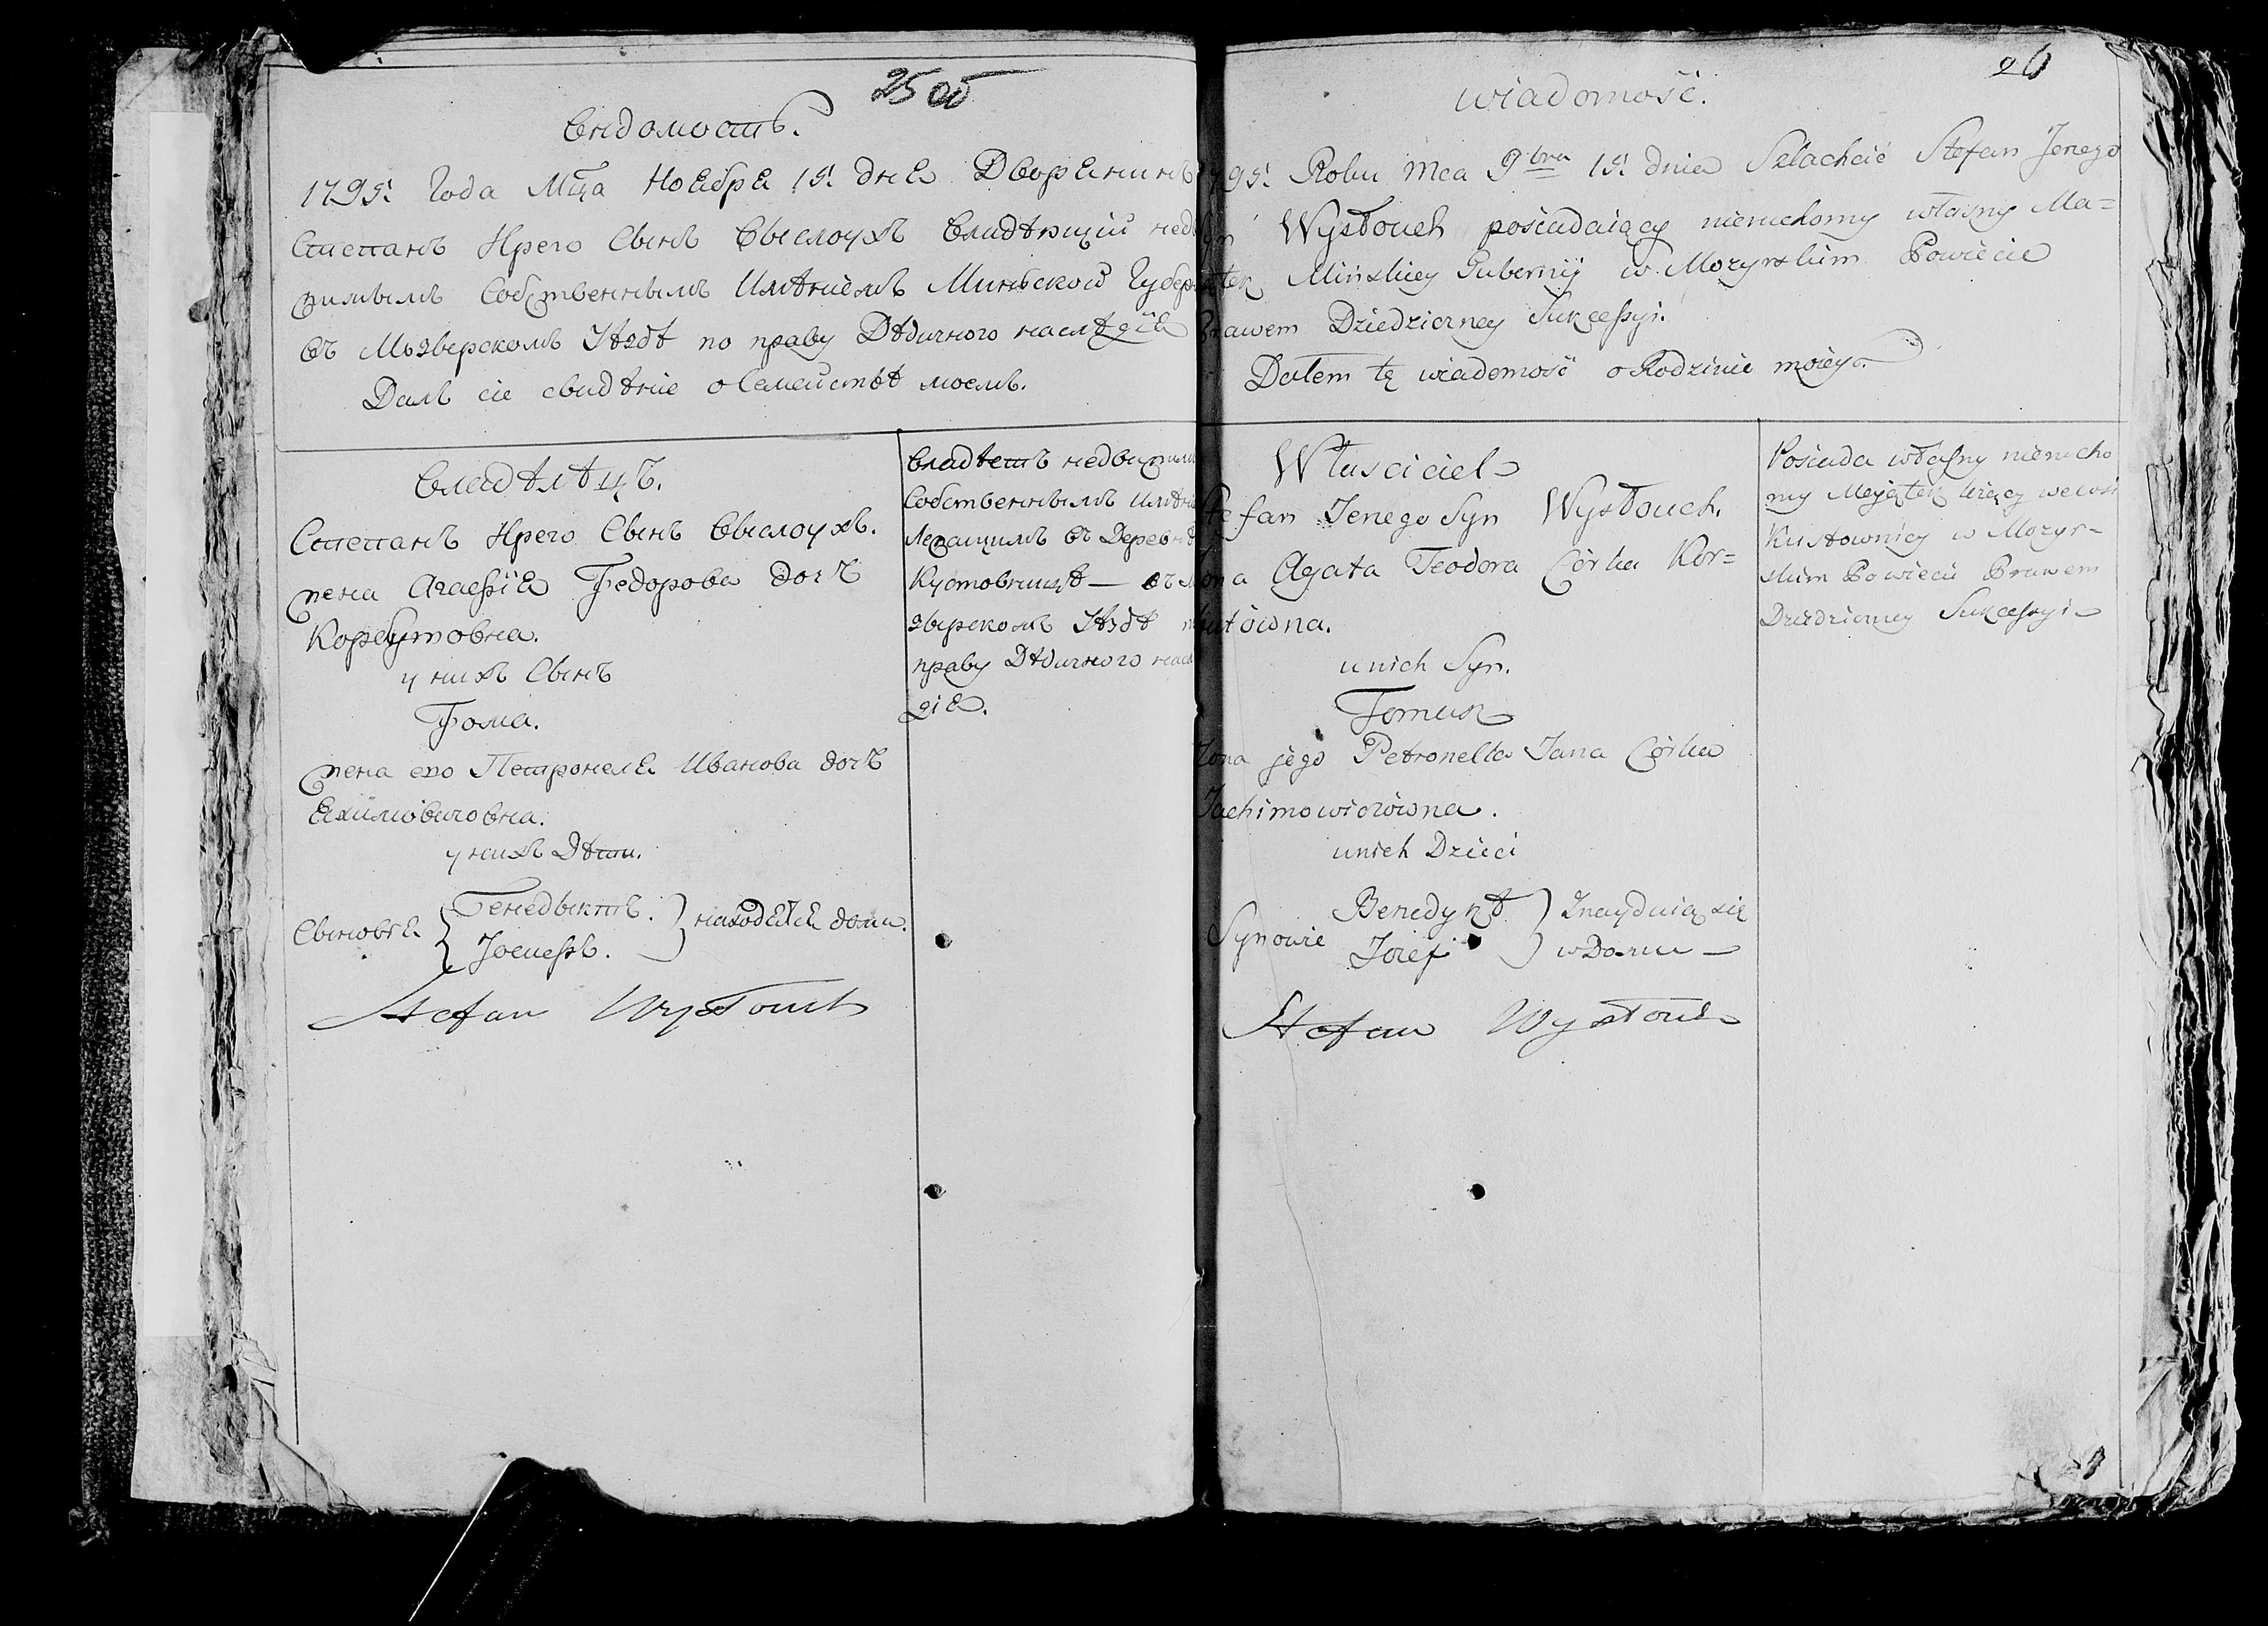 25 об
Вѣдомость.
1795: Года Мца Ноября 15: дня Дворянинъ
Степанъ Юрего Сынъ Выслоухъ Владѣющій недви
жимымъ Собственнымъ Имѣніемъ Минской Губер
въ Мозырскомъ Уѣздѣ по праву Дѣдичного наслѣдія
Далъ сіе свидѣніе о Семействѣ моемъ.
Владѣлѣцъ.
Степанъ Юрего Сынъ Выслоухъ.
жена Агафія Федорова дочь
Корбутовна.
у нихъ Сынъ
Фома.
жена его Петронеля Иванова дочь
Яхимовичовна.
у нихъ Дѣти.
Сыновья
Бенедыктъ.
Іосифъ.
находятся дома.
Stefan Wysłouch
Владѣетъ недвижим
Собственнымъ Имѣн
Лежащимъ въ Деревнѣ
Кустовницѣ — въ М
зырскомъ Уѣздѣ п
праву Дѣдичного насл
дія.
26
wiadomość.
795: Roku Mca 9bra 15: dnia Szlachcić Stefan Jerzego
Syn Wysłouch posiadaiący nieruchomy własny Ma=
iątek Mińskiey Gubernij w Mozyrskim Powiecie
Prawem Dziedziczney Sukcessyi.
Dałem tę wiadomość o Rodzinie moiey.
Właściciel
Stefan Jerzego Syn Wysłouch.
Żona Agata Teodora Córka Kor=
butówna.
u nich Syn.
Tomasz
Żona jego Petronella Jana Córka
Jachimowiczówna.
u nich Dzieci
Synowie
Benedykt
Józef
Znayduią się
w Domu —
Stefan Wysłouch
Posiada własny nierucho
my Maiątek leżący we wsi
Kustownicy w Mozyr=
skim Powiecie Prawem
Dziedziczney Sukcessyi